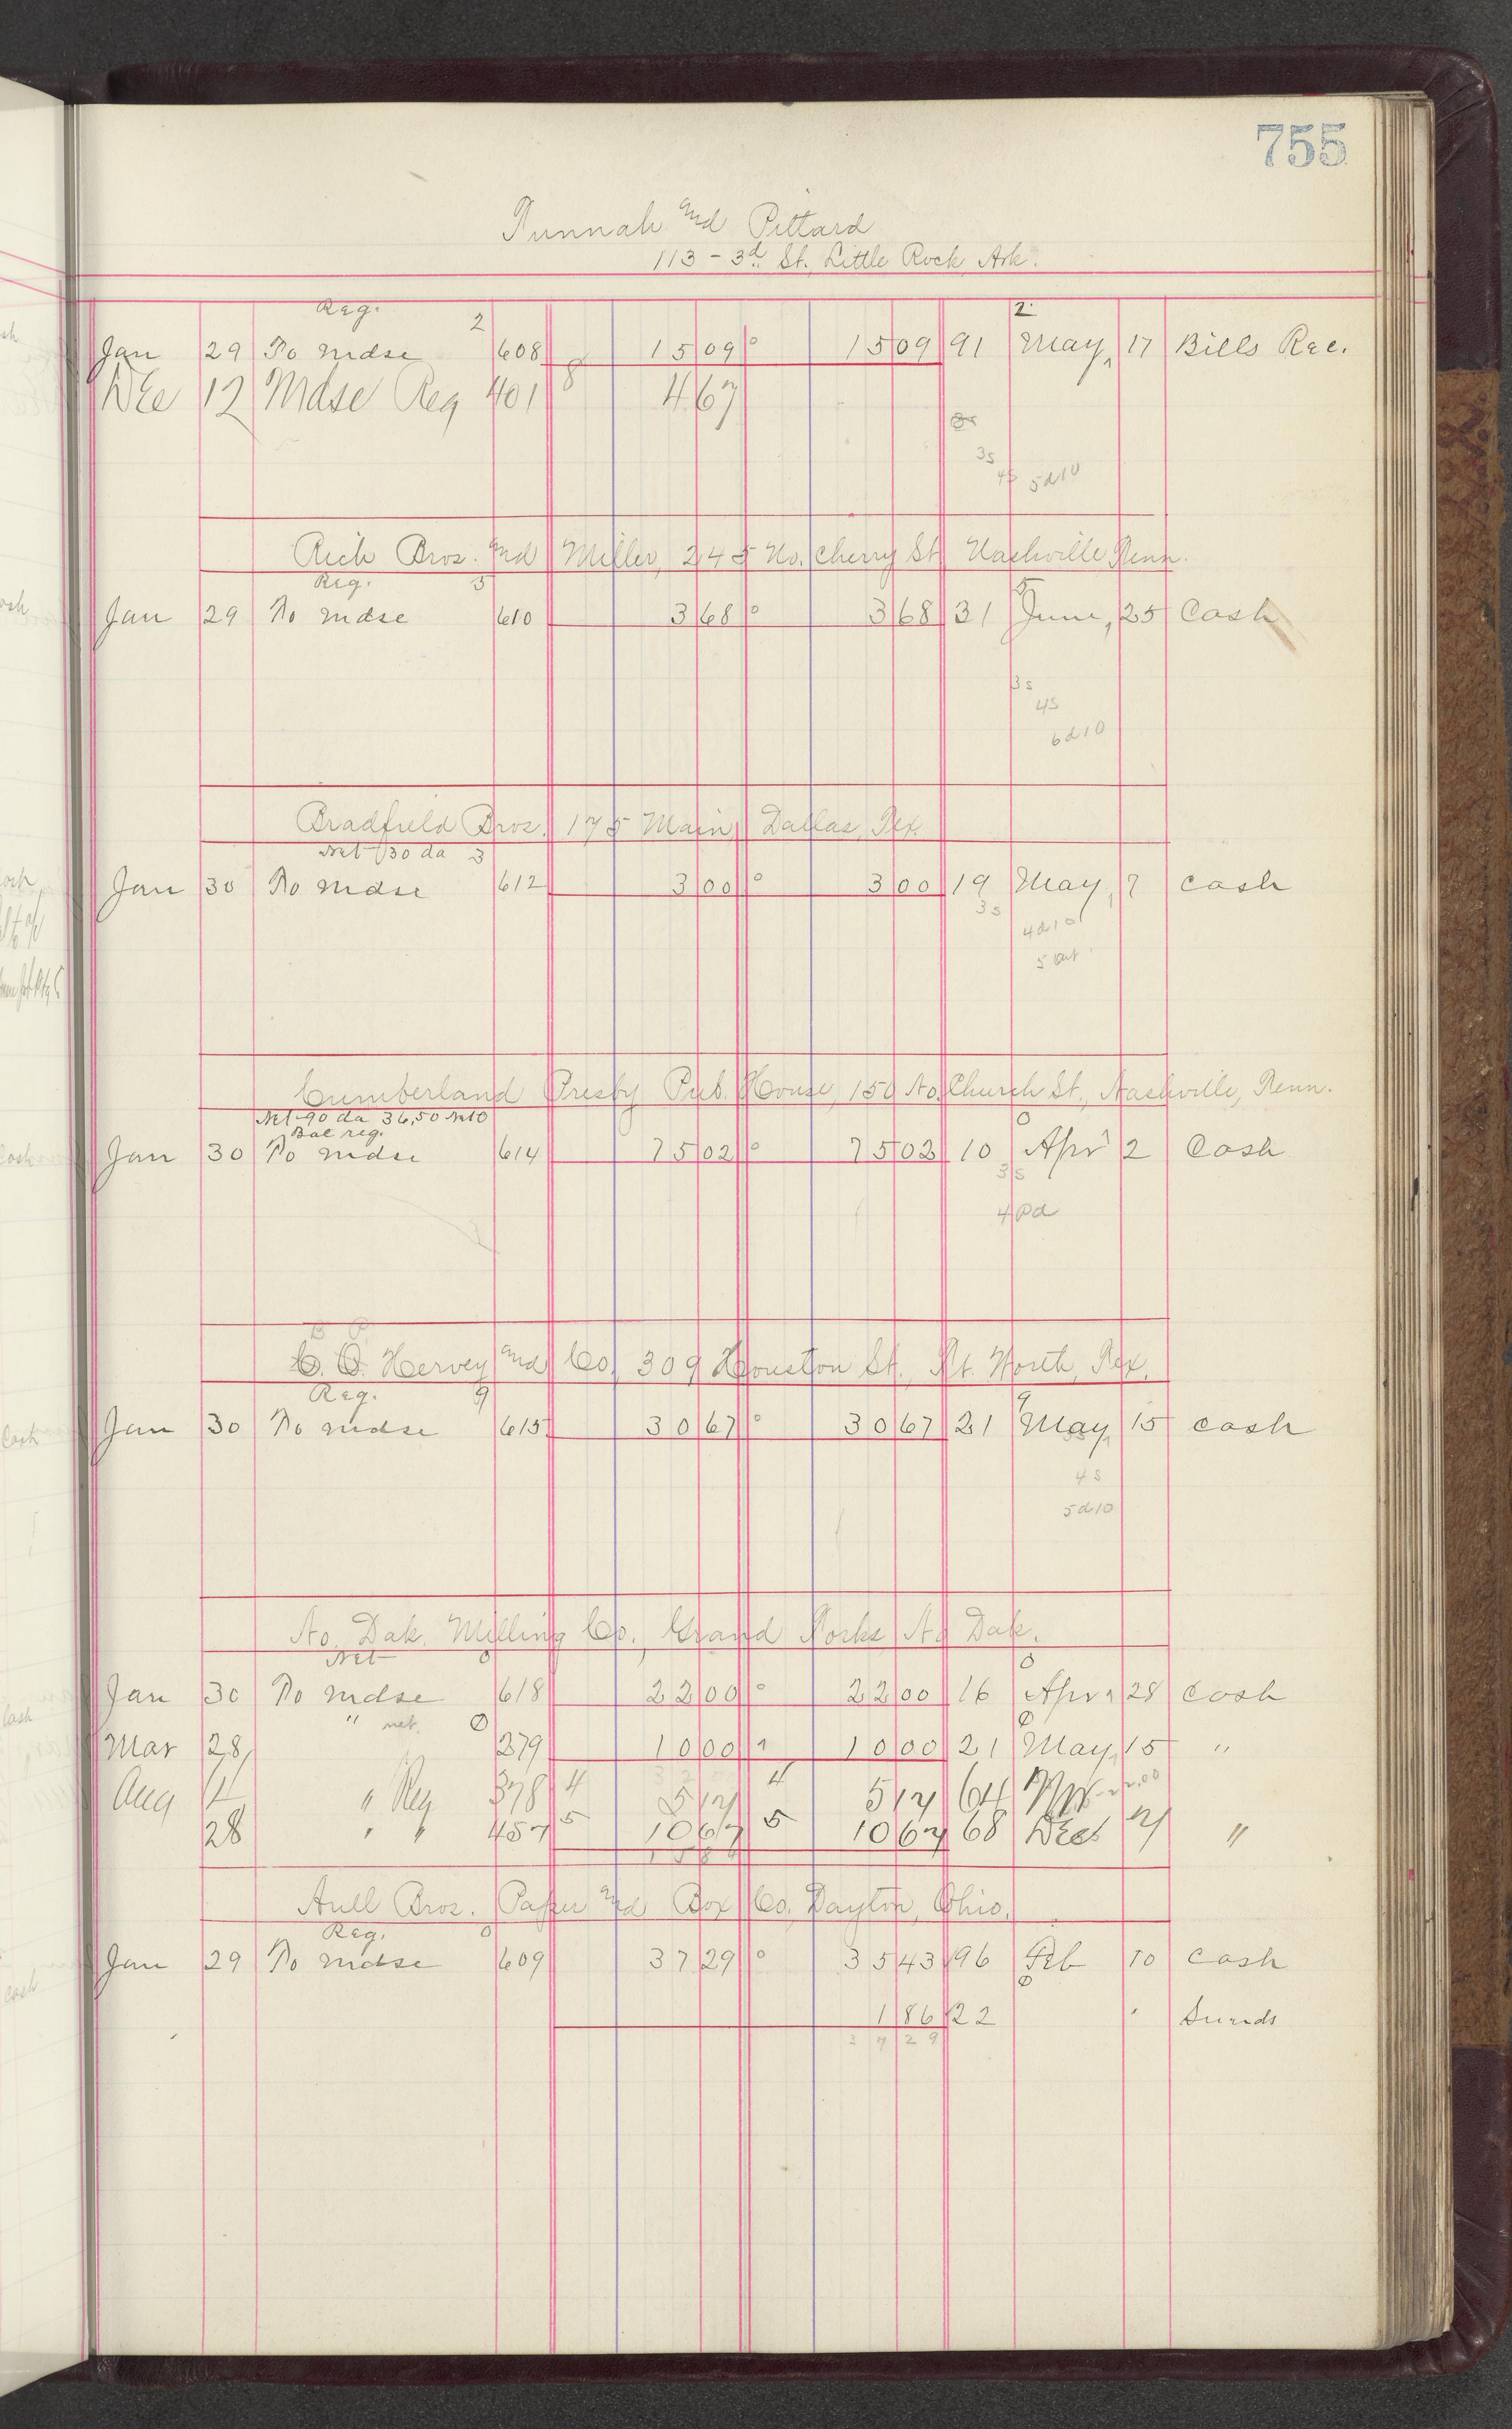 755
Nunnah and Pittard
113 - 3d St. Little Rock Ark.
Reg. 2 2
Jan 29 To mdse 608 15 09 15 09 91 May, 17 Bills Rec.
Dec 12 Mdse Reg 401 8 4 67
3s
4s 5d10
Rich Bros. and Miller, 245 No. Cherry St Nashville Tenn.
Reg. 5 5
Jan 29 To mdse 610 3 68 3 68 31 June, 25 Cash
3s
4s
6d10
Bradfield Bros. 175 Main, Dallas, Tex.
Net 30 da 3
Jan 30 To mdse 612 3 00 3 00 19 May, 7 Cash
3s
4d10
5
Cumberland Presby Pub. House, 150 No. Church St., Nashville, Tenn.
Net 90 da 36,50 Net 0 0
Bal reg.
Jan 30 To mdse 614 75 02 75 02 10 Apr 2 Cash
3s
4 Pd
B P
C. O. Hervey and Co, 309 Houston St., Ft. Worth, Tex.
Reg. 9 9
Jan 30 To mdse 615 30 67 30 67 21 May, 15 Cash
4s
5d10
No. Dak. Milling Co., Grand Forks, No Dak.
Net 0 0
Jan 30 To mdse 618 22 00 22 00 16 Apr, 28 Cash
" net. 0 0
Mar 28, 279 10 00 10 00 21 May, 15 "
Aug 4 " Reg 378 4 5 17 4 5 17 64
28 " " 457 5 10 67 5 10 67 68 Dec 21 "
15 84
Aull Bros. Paper and Box Co., Dayton, Ohio.
Reg. 0
Jan 29 To mdse 609 37 29 35 43 96 Feb 10 Cash
0
1 86 22 " Sunds
37 29